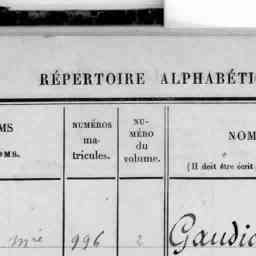 RÉPERTOIRE ALPHABÉTI
MS
OMS.
NUMÉROS
ma-
tricules.
NU-
MÉRO
du
volume.
NOM
(Il doit être écrit
mié 996 2 Gaudic